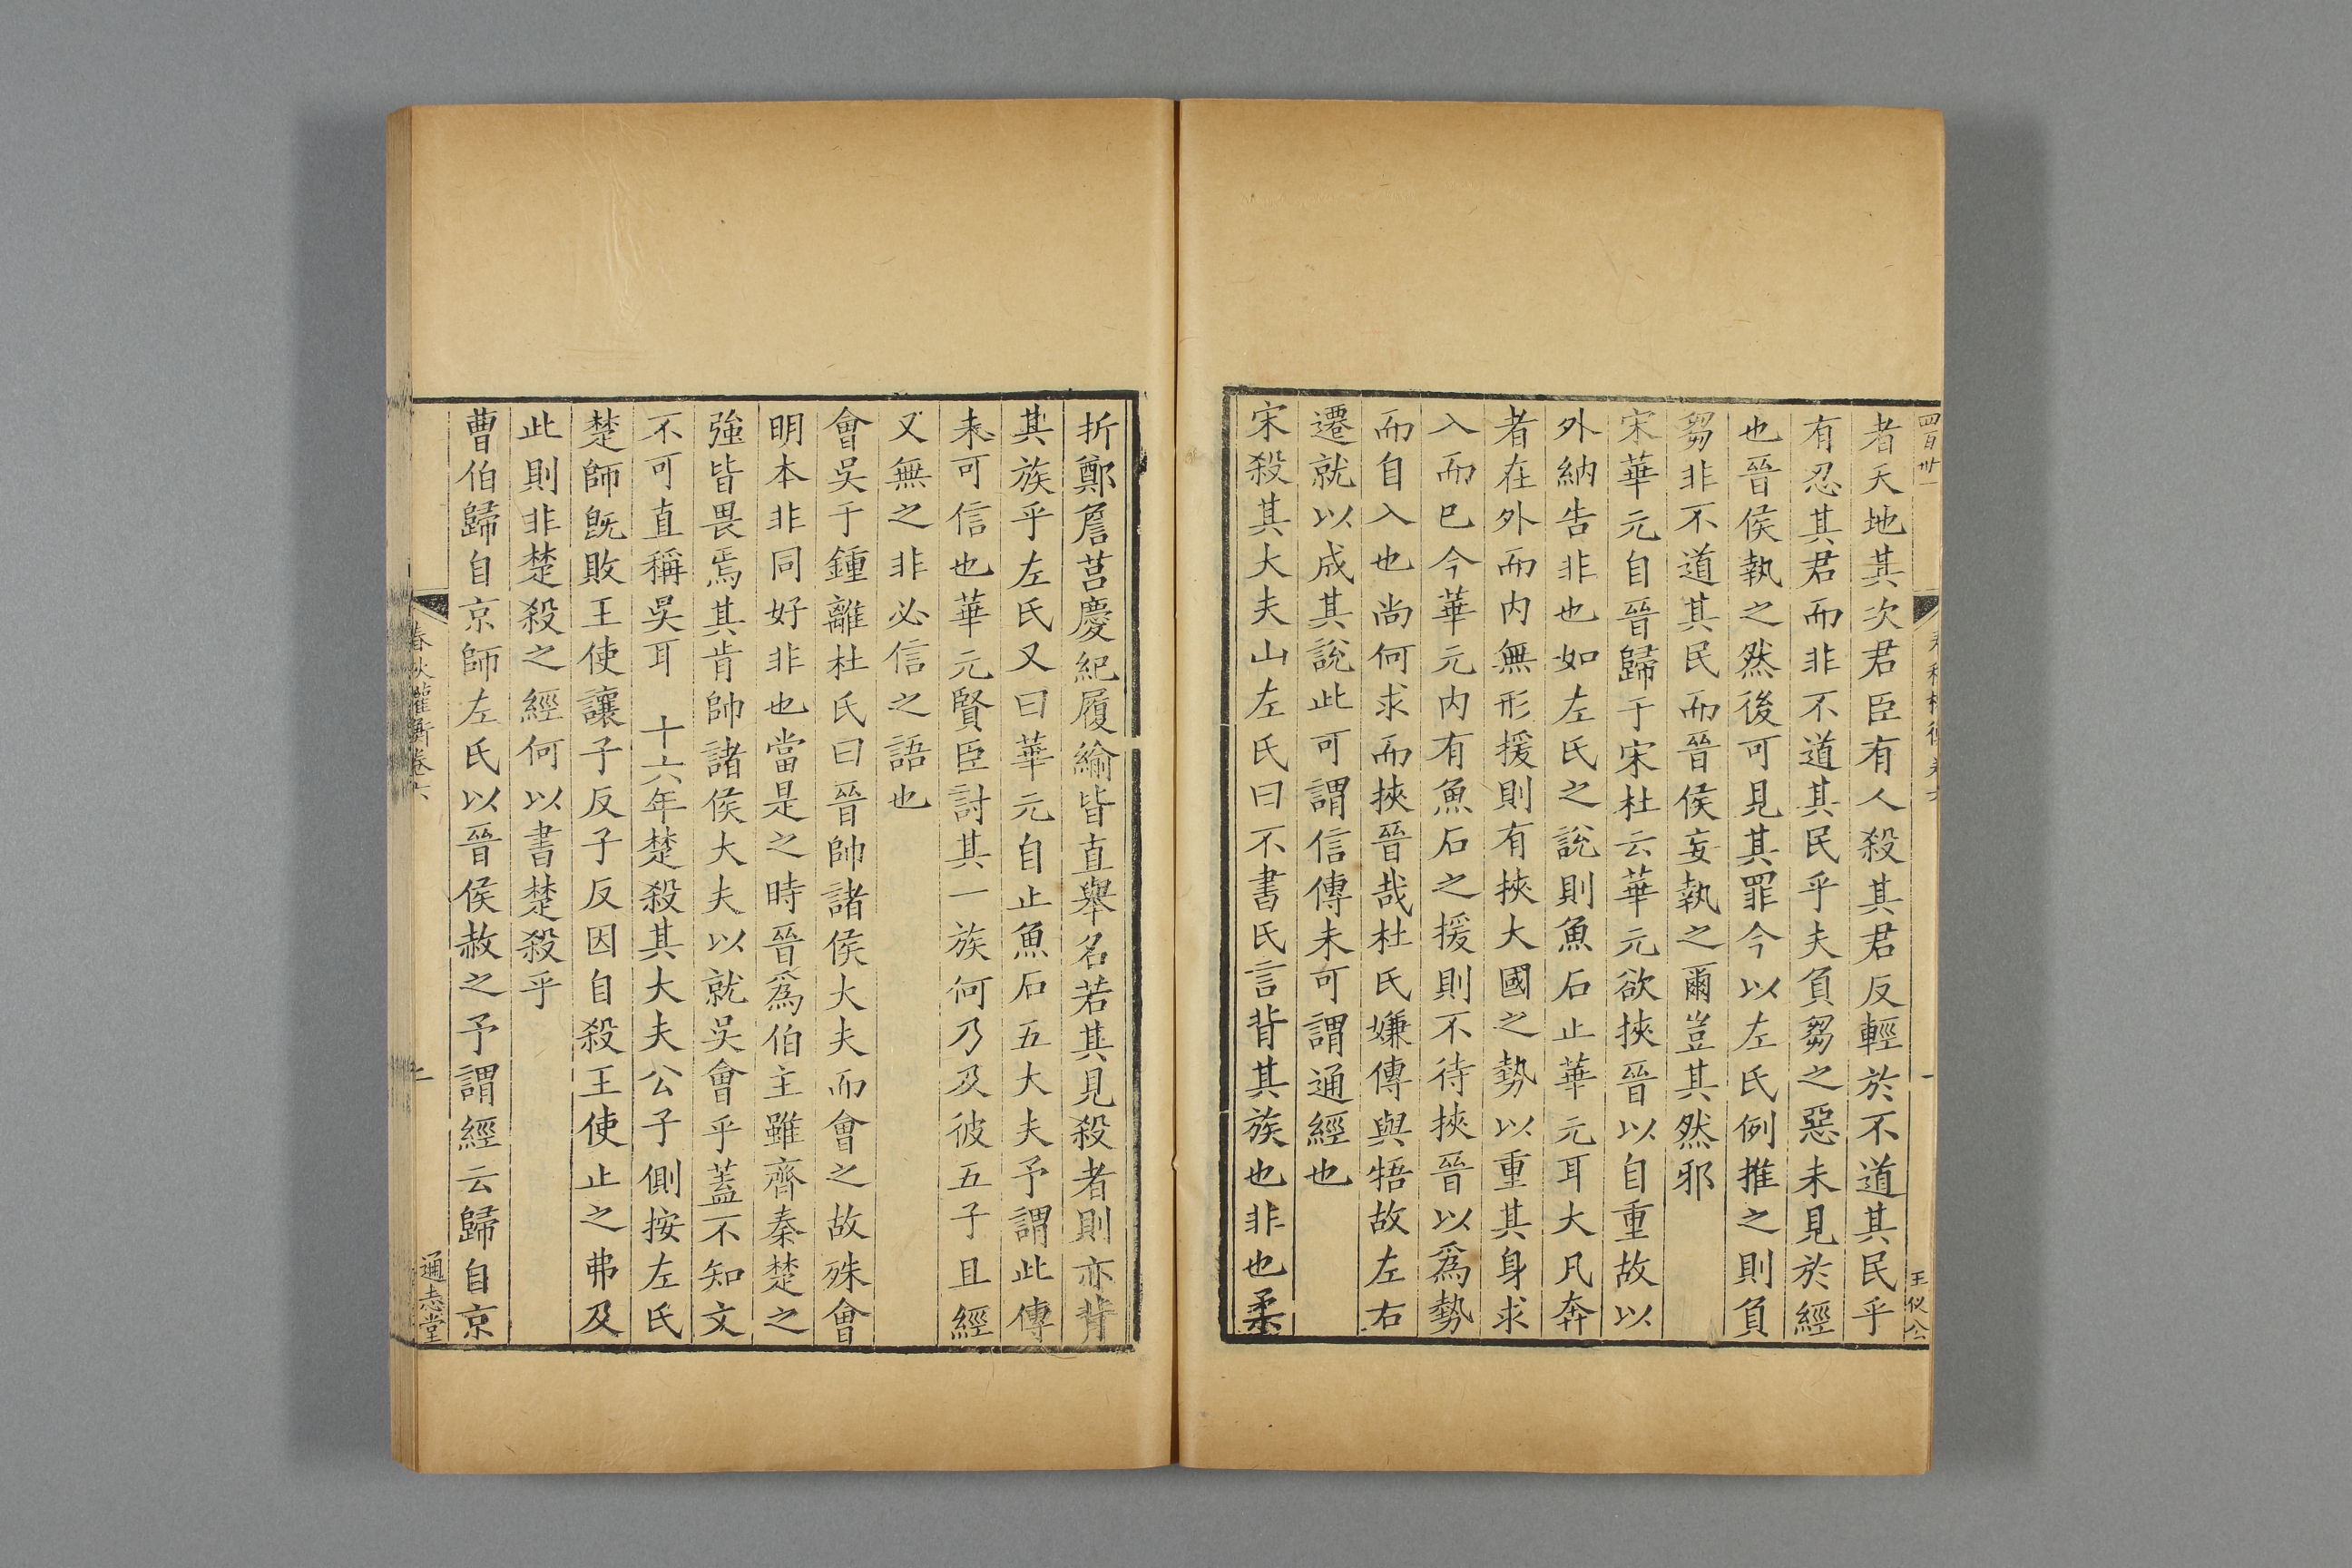 四百卅一
王仪公
者天地其次君臣有人殺其君反輕於不道其民乎
有忍其君而非不道其民乎夫負芻之惡未見於經
也晉侯執之然後可見其罪今以左氏例推之則負
芻非不道其民而晉侯妄執之爾豈其然邪
宋華元自晉歸于宋杜云華元欲挾晉以自重故以
外納告非也如左氏之說則魚石止華元耳大凡奔
者在外而內無形援則有挾大國之勢以重其身求
入而巳今華元內有魚石之援則不待挾晉以爲勢
而自入也尚何求而挾晉哉杜氏嫌傳與牾故左右
遷就以成其說此可謂信傳未可謂通經也
宋殺其大夫山左氏曰不書氏言背其族也非也柔
折鄭詹莒慶紀履緰皆直舉名若其見殺者則亦背
其族乎左氏又曰華元自止魚石五大夫予謂此傳
未可信也華元賢臣討其一族何乃及彼五子且經
又無之非必信之語也
會吳于鍾離杜氏曰晉帥諸侯大夫而會之故殊會
明本非同好非也當是之時晉爲伯主雖齊秦楚之
強皆畏焉其肯帥諸侯大夫以就吳會乎蓋不知文
不可直稱吳耳　十六年楚殺其大夫公子側按左氏
楚師旣敗王使讓子反子反因自殺王使止之弗及
此則非楚殺之經何以書楚殺乎
曹伯歸自京師左氏以晉侯赦之予謂經云歸自京
春秋權衡卷六
通志堂